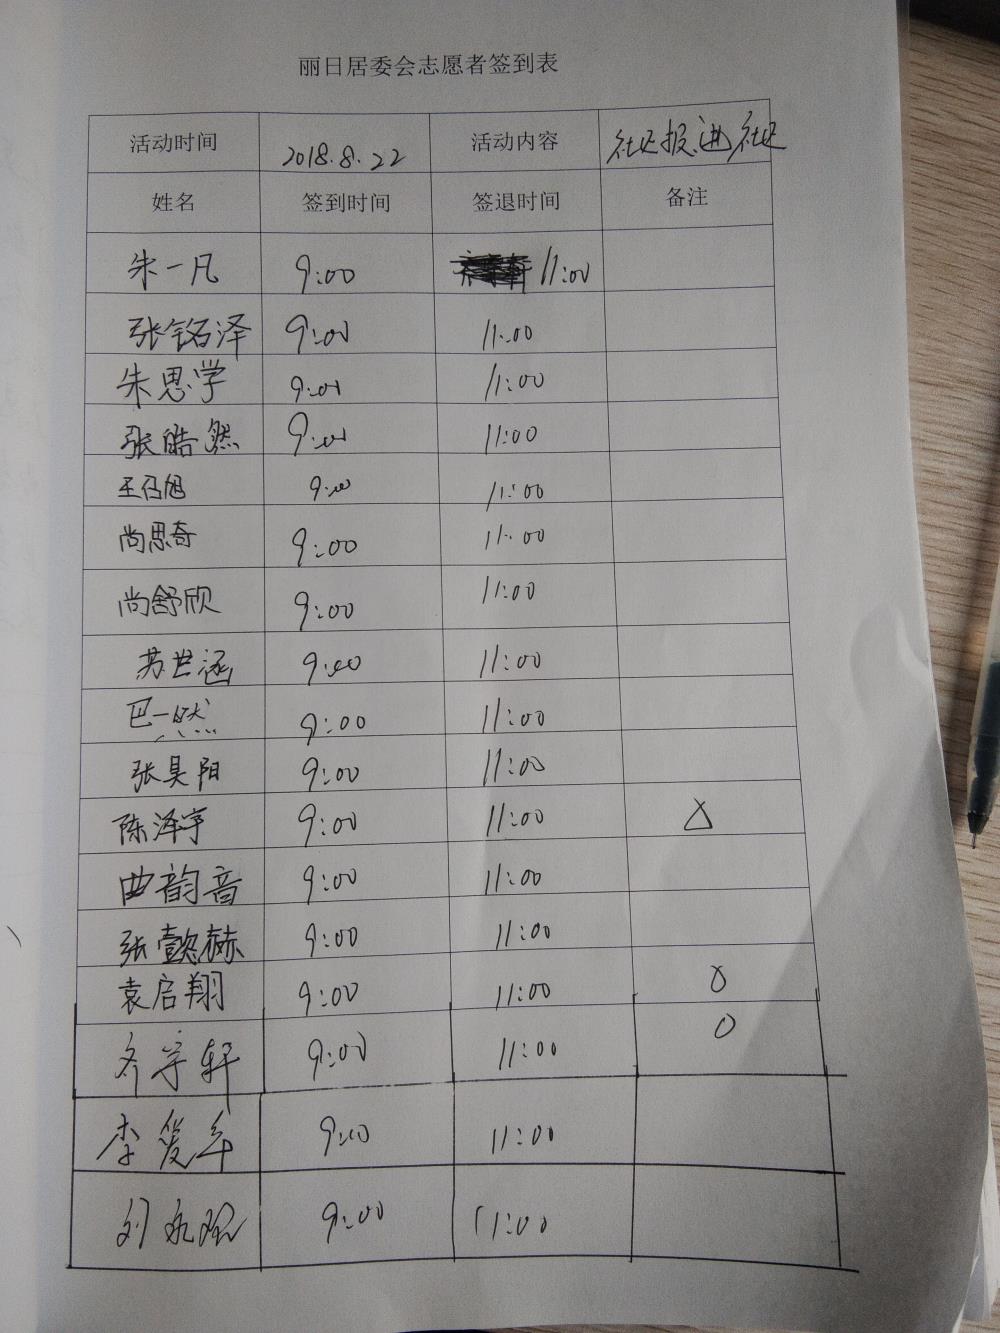 丽日居委会志愿者签到表
活动时间 2018.8.22 活动内容 社区报进社区
姓名 签到时间 签退时间 备注
朱一凡 9:00 11:00
张铭泽 9:00 11:00
朱思学 9:00 11:00
张皓然 9:00 11:00
9:00 11:00
尚思奇 9:00 11:00
尚舒欣 9:00 11:00
苏世涵 9:00 11:00
巴一然 9:00 11:00
张昊阳 9:00 11:00
陈泽宇 9:00 11:00 △
曲韵音 9:00 11:00
张懿赫 9:00 11:00
袁启翔 9:00 11:00
齐宇轩 9:00 11:00 O
李爱军 9:00 11:00
9:00 11:00